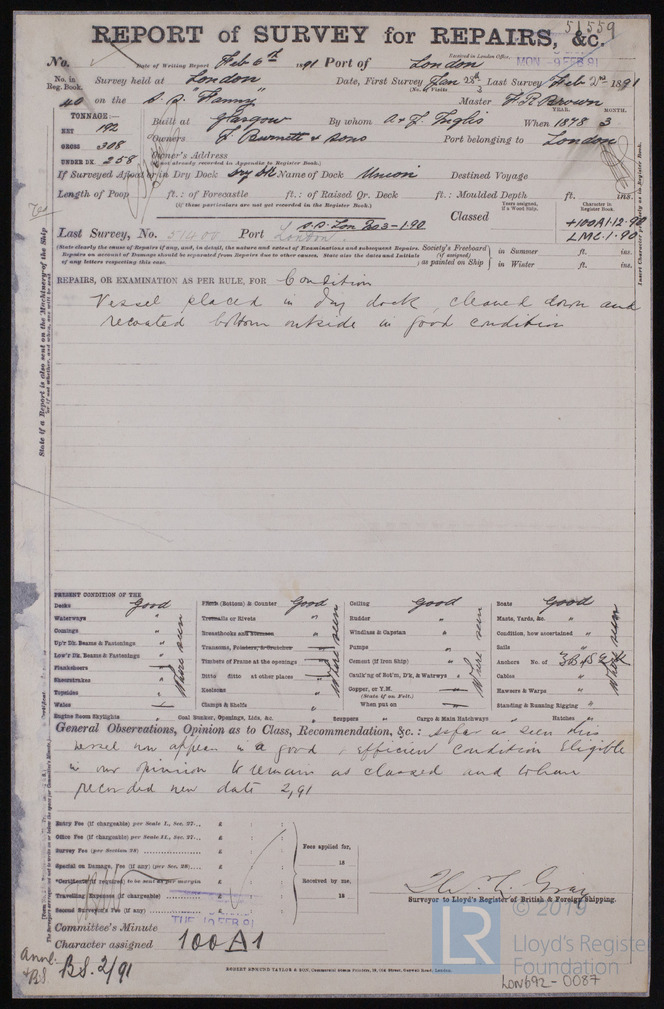 51559
REPORT of SURVEY for REPAIRS, &c.
No. Date of Writing Report Feb 6th 1891 Port of London Received in London Office, MON - 9 FEB 91
No. in Reg. Book. Survey held at London Date, First Survey Jan 28th Last Survey Feb 2nd 1891
(No. of Visits 3)
40 on the S.S. "Fanny" Master H.R. Brown
TONNAGE:— Built at Glasgow By whom A & J Inglis When 1878 3
YEAR. MONTH.
NET 192
GROSS 308 Owners J. Burnett & Sons Port belonging to London
UNDER DK. 258 Owner's Address
(if not already recorded in Appendix to Register Book.)
If Surveyed Afloat or in Dry Dock Dry Dk Name of Dock Union Destined Voyage
Length of Poop ft.: of Forecastle ft.: of Raised Qr. Deck ft.: Moulded Depth ft. ins.
(if these particulars are not yet recorded in the Register Book.) Years assigned, if a Wood Ship. Character in Register Book.
Classed +100A1·12·90
S.S. Lon No 3-1·90 LMC·1·90
Last Survey, No. 51400 Port London
(State clearly the cause of Repairs if any, and, in detail, the nature and extent of Examinations and subsequent Repairs.
Repairs on account of Damage should be separated from Repairs due to other causes. State also the dates and Initials
of any letters respecting this case.
Society's Freeboard (if assigned) as painted on Ship in Summer ft. ins.
in Winter ft. ins.
REPAIRS, OR EXAMINATION AS PER RULE, FOR Condition
Vessel placed in dry dock, cleaned down and
recoated bottom outside in good condition
State if a Report is also sent on the Machinery of the Ship
Insert Character precisely as in Register Book.
PRESENT CONDITION OF THE
Decks Good Pitch (Bottom) & Counter Good Ceiling Good Boats Good
Waterways " Treenails or Rivets " Rudder " Masts, Yards, &c. "
Comings " Breasthooks and Stemson " Windlass & Capstan " Condition, how ascertained "
Up'r Dk. Beams & Fastenings " Transoms, Pointers, & Crutches Pumps " Sails "
Low'r Dk. Beams & Fastenings " Timbers of Frame at the openings Cement (if Iron Ship) " Anchors No. of
Planksheers Ditto ditto at other places Caulk'ng of Bot'm, D'k, & Watrwys Cables "
Sheerstrakes Keelsons " Copper, or Y.M. Hawsers & Warps "
(State if on Felt.)
Topsides Clamps & Shelfs When put on Standing & Running Rigging "
Wales
Where seen
Where seen
Where seen
Where seen
Engine Room Skylights " Coal Bunker, Openings, Lids, &c. " Scuppers " Cargo & Main Hatchways " Hatches "
General Observations, Opinion as to Class, Recommendation, &c.: so far as seen this
vessel now appears in a good & efficient condition Eligible
in our opinion to remain as classed and to have
recorded new date 2,91
Entry Fee (if chargeable) per Scale I., Sec. 27... £ : :
Office Fee (if chargeable) per Scale II., Sec. 27... £ : :
Survey Fee (per Section 28) £ : :
Special or Damage, Fee (if any) (per Sec. 28) £ : :
*Certificate (if required) to be sent as per margin
Travelling Expenses (if chargeable) £ : :
Second Surveyor's Fee (if any) £ : :
Fees applied for,
18
Received by me,
18
Surveyor to Lloyd's Register of British & Foreign Shipping.
Committee's Minute TUE 10 FEB 91
Character assigned 100A1
B.S. 2/91
ROBERT EDMUND TAYLOR & SON,
© 2019
LR
Lloyd's Register
Foundation
LON692-0087